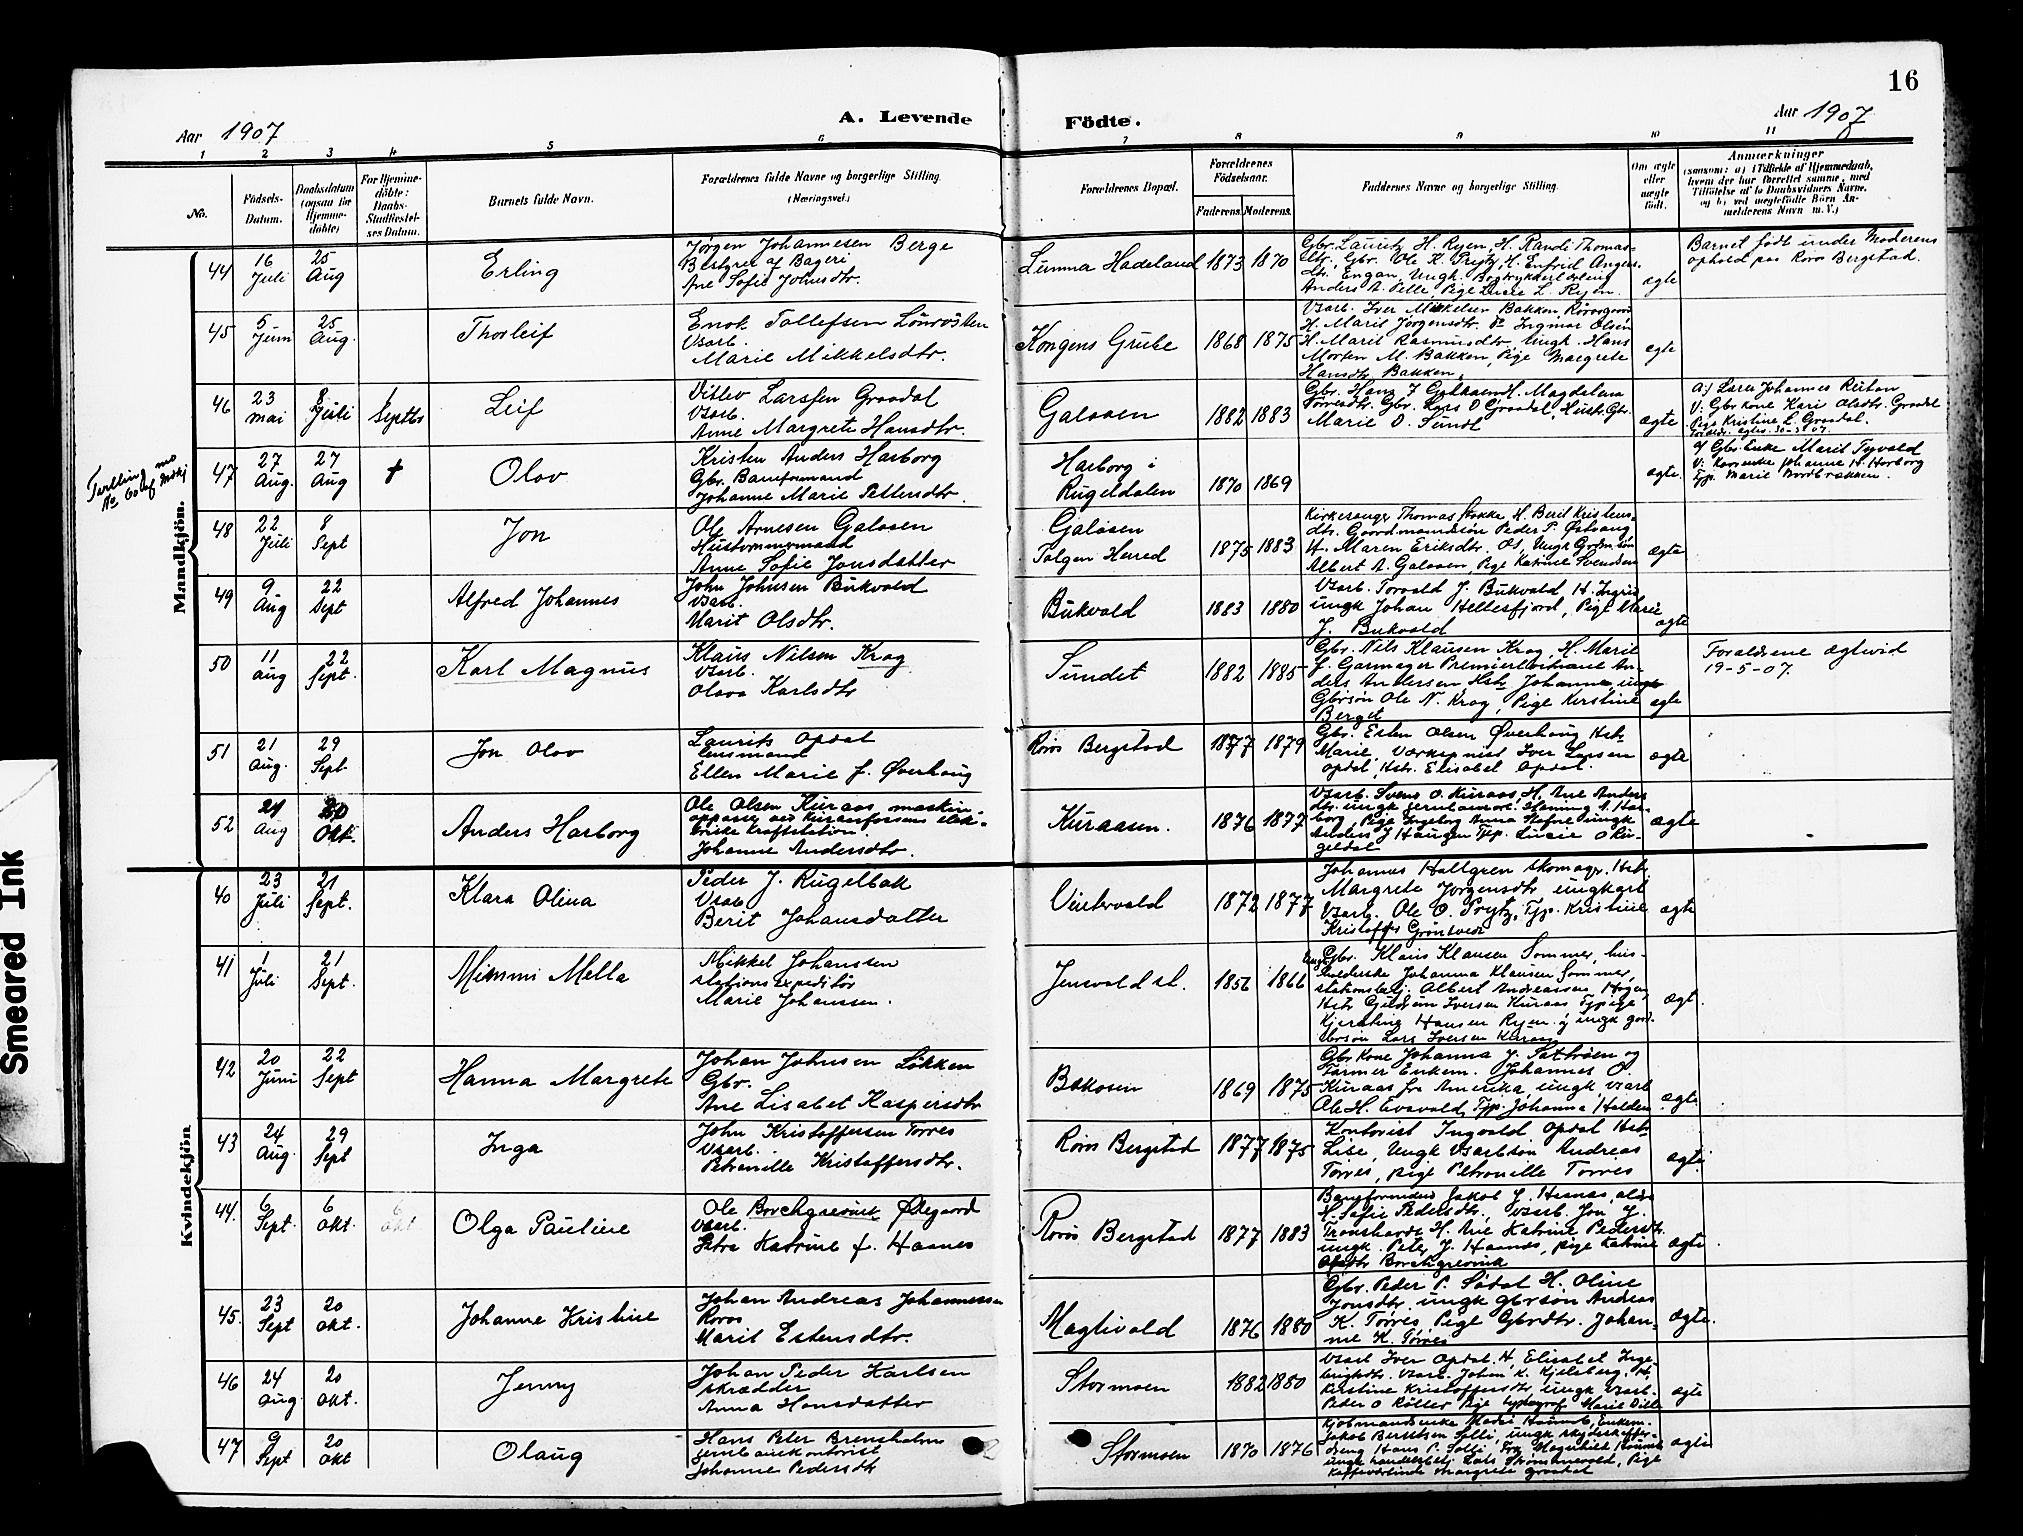 16
A. Levende Födte.
Aar 1907
Aar 1907
1 2 3 4 5 6 7 8 9 10 11
No.
Födsels-
Datum.
Daabsdatum
(ogsaa for
Hjemme-
döbte)
For Hjemme-
döbte:
Daabs-
Stadfæstel-
ses Datum.
Barnets fulde Navn.
Forældrenes fulde Navne og borgerlige Stilling.
(Næringsvei.)
Forældrenes Bopæl.
Forældrenes
Födselsaar.
Faderens. Moderens.
Faddernes Navne og borgerlige Stilling.
Om ægte
eller
uægte
født.
Anmærkninger
(saasom: a) i Tilfælde af Hjemmedaab,
hvem der har forrettet samme, med
Tilföielse af to Daabsvidners Navne,
og b) ved uægtefödte Börn An-
melderens Navn m. V.)
Mandkjön.
44 16 Juli 25 Aug Erling
Jørgen Johannesen Berge
Bestyrer af Bageri
Ane Sofie Johnsdtr.
Lunna Hadeland 1873 1870
Gbr. Lauritz H. Ryen, H. Randi Thomas-
dtr, Gbr. Ole K. Prytz, H. Enfrid Anders-
dtr. Engan, Ungk. Bogtrykkerlærling
Anders A. Pelle Pige Lucie L. Ryen.
ægte
Barnet født under Moderens
ophold paa Røros Bergstad.
45 5 Juni 25 Aug. Thorleif
Enok Tollefsen Lønrøsten
Vsarb.
Marie Mikkelsdtr.
Kongens Grube 1868 1875
Vsarb. Iver Mikkelsen Bakken, Rørosgaard
H. Marit Jørgensdtr. Do Ingmar Olsen
H. Marit Rasmusdtr, Ungk. Hans
Morten M. Bakken, Pige Margrete
Hansdtr. Bakken.
ægte
46 23 Mai 8 Juli 1 Septbr Leif
Ditlev Larssen Graadal
Vsarb.
Anne Margrete Hansdtr.
Galaaen 1882 1883
Gbr. Hans J. H. Magdalena
Torresdtr. Gbr. Lars O Graadal, Hustr. Gbr.
Marie O. Sundt
ægte
A:) Lærer Johannes
V: Gbr kone Kari Olsdtr. Graadal
Pige Kristine L. Graadal.
Foreldr. ægtev. 30-3-07.
Tvilling mo
No 60 af Mdkj
47 27 Aug. 27 Aug † Olov
Kristen Anders Harborg
Gbr. Baneformand
Johanne Marie Pettersdtr.
Harborg i
Rugeldalen 1870 1869
ægte
a) Gbr. Enke Marit Tyvold
V: Kaarenke Johanne H. Harborg
Tjp. Marie Nordbrækken.
48 22 Juli 8 Sept Jon
Ole Arnesen Galaaen
Hustømmermand
Anne Sofie Jonsdatter
Galåsen
Tolgen Herred 1875 1883
Kirkesanger Thomas Stokke H. Berit Kristens-
dtr. Gaardmandssøn Peder P. Østvang
H. Maren Eriksdtr. Os, Ungk Grdm. søn
Albert A. Galaaen, Pige Katrine Svendsen
ægte
49 9 Aug 22 Sept Alfred Johannes
John Johnsen Bukvold
Vsarb.
Marit Olsdtr.
Bukvold 1883 1880
Vsarb. Torvald J. Bukvold H. Ingrid
ungk Johan Hellesfjord, Pige Marie
J. Bukvold
ægte
50 11 Aug 22 Sept. Karl Magnus
Klaus Nilsen Krog
Vsarb.
Olava Karlsdtr
Sundet 1882 1885
Gbr. Nils Klausen Krog, H. Marit
f. Garmager Premierløitnant An-
ders Andersen Hstr. Johanne ungk
Gbrsøn Ole N. Krog, Pige Kerstine
Berget
ægte
Forældrene ægteviet
19-5-07.
51 21 Aug. 29 Sept. Jon Olov
Laurits Opdal
Lensmand
Ellen Marie f. Øverhaug
Røros Bergstad 1877 1879
Gbr. Esten Olsen Øverhaug Hstr.
Marie, Værksmed Iver Larsen
Opdal, Hstr. Elisabet Opdal.
ægte
52 24 Aug 20 Okt. Anders Harborg
Ole Olsen Kuraas, maskin-
opasser ved Kuraasfossens elek-
triske Kraftstation.
Johanne Andersdtr.
Kuraasen. 1876 1877
Vsarb. Svend O. Kuraas, H. Ane Anders
dtr. ungk jernbanearb. Henning A. Har-
borg, Pige Ingeborg Anna Stefne ungk
Anders J Haugen Tjp. Lucie O Ru-
geldal
ægte
Kvindekjön
40 23 Juli 21 Sept. Klara Olina
Peder J. Rugelbak
Vsarb
Berit Johansdatter
Vintervold 1872 1877
Johannes Hallgren skomagr. Hstr.
Margrete Jørgensdtr ungkarl
Vsarb. Ole O. Prytz, Tjp. Kristine
Kristoffs Grøntvedt
ægte
41 1 Juli 21 Sept. Mimmi Mella
Mikkel Johanssen
stationsexpeditør
Marie Johanssen.
Jensvold st. 1856 1866
Gbr. Klaus Klausen Sommer, hus-
holderske Johanna Klausen Sommer,
stationsbetj. Albert Andreassen Hagen,
Hstr Gjertrun Iversen Kuraas Tjpige
Kjerstine Hansen Ryen og ungk gaard-
brsøn Lars Iversen Kuraas
ægt.
42 20 Juni 22 Sept Hanna Margrete
Johan Johnsen Løkken
Gbr.
Ane Lisabet Kaspersdtr
Bakosen 1869 1875
Gbr Kone Johanna J. Sætrøen og
Farmer Enkem. Johannes O.
Kuraas fra Amerika, ungk vsarb
Ole H. Evavold, Tjp. Johanna Halden
ægte
43 24 Aug 29 Sept Inga
John Kristoffersen Torres
Vsarb.
Petronille Kristoffersdtr.
Røros Bergstad 1877 1875
Kontorist Ingvald Opdal Hstr
Lise, Ungk Vsarbsøn Andreas
Torres, pige Petronille Torres
ægte
44. 6 Sept. 6 Okt. 6 Okt Olga Pauline
Ole Borchgrevink Ødegaard
Vsarb.
Petra Katrine f. Haanes
Røros Bergstad 1877 1883
Baneformand Jakob J. Haanes, Ålen
H. Sofie Pedersdtr., vsarb. Jon J.
Tronshardt H. Ane Katrine Pedersdtr.
ungk. Peter J. Haanes, pige Katrine
Olsdtr Borchgrevink
ægte.
45. 23 Sept 20 Okt. Johanne Kristine
Johan Andreas Johannessen
Røros
Marit Estensdtr.
Magtivold 1876 1880
Gbr. Peder P. Sødal H. Oline
Jonsdtr. ungk gbrsøn Andreas
K. Torres Pige Gbrdtr. Johan-
ne K. Torres
ægte.
46 24 Aug 20 Okt. Jenny
Johan Peder Karlsen
skrædder
Anna Hansdatter
Stormoen 1882 1880
Vsarb Iver Opdal, H. Elisabet Inge-
brigtsdtr. Vsarb. Johan K. Kjelsberg, H.
Kerstine Kristoffersdtr, ungk Vsarb.
Peder O Røtter Pige typograf Marie Dille
ægte
47 9 Sept 20 Okt Olaug
Hans Peter Brensholm
jernbanekontorist
Johanne Pedersdtr
Stormoen 1870 1876
Kjøbmandsenke Madsi Haanæs, Enkem.
Jakob Berntsen Solli, ungk skydsskaffer-
dreng Hans P. Solli, Magnhild
ungk handelsbetj. Lars Strømmevold, Pige
kaffeværtinde Margrete Graadal
ægte
Smeared Ink